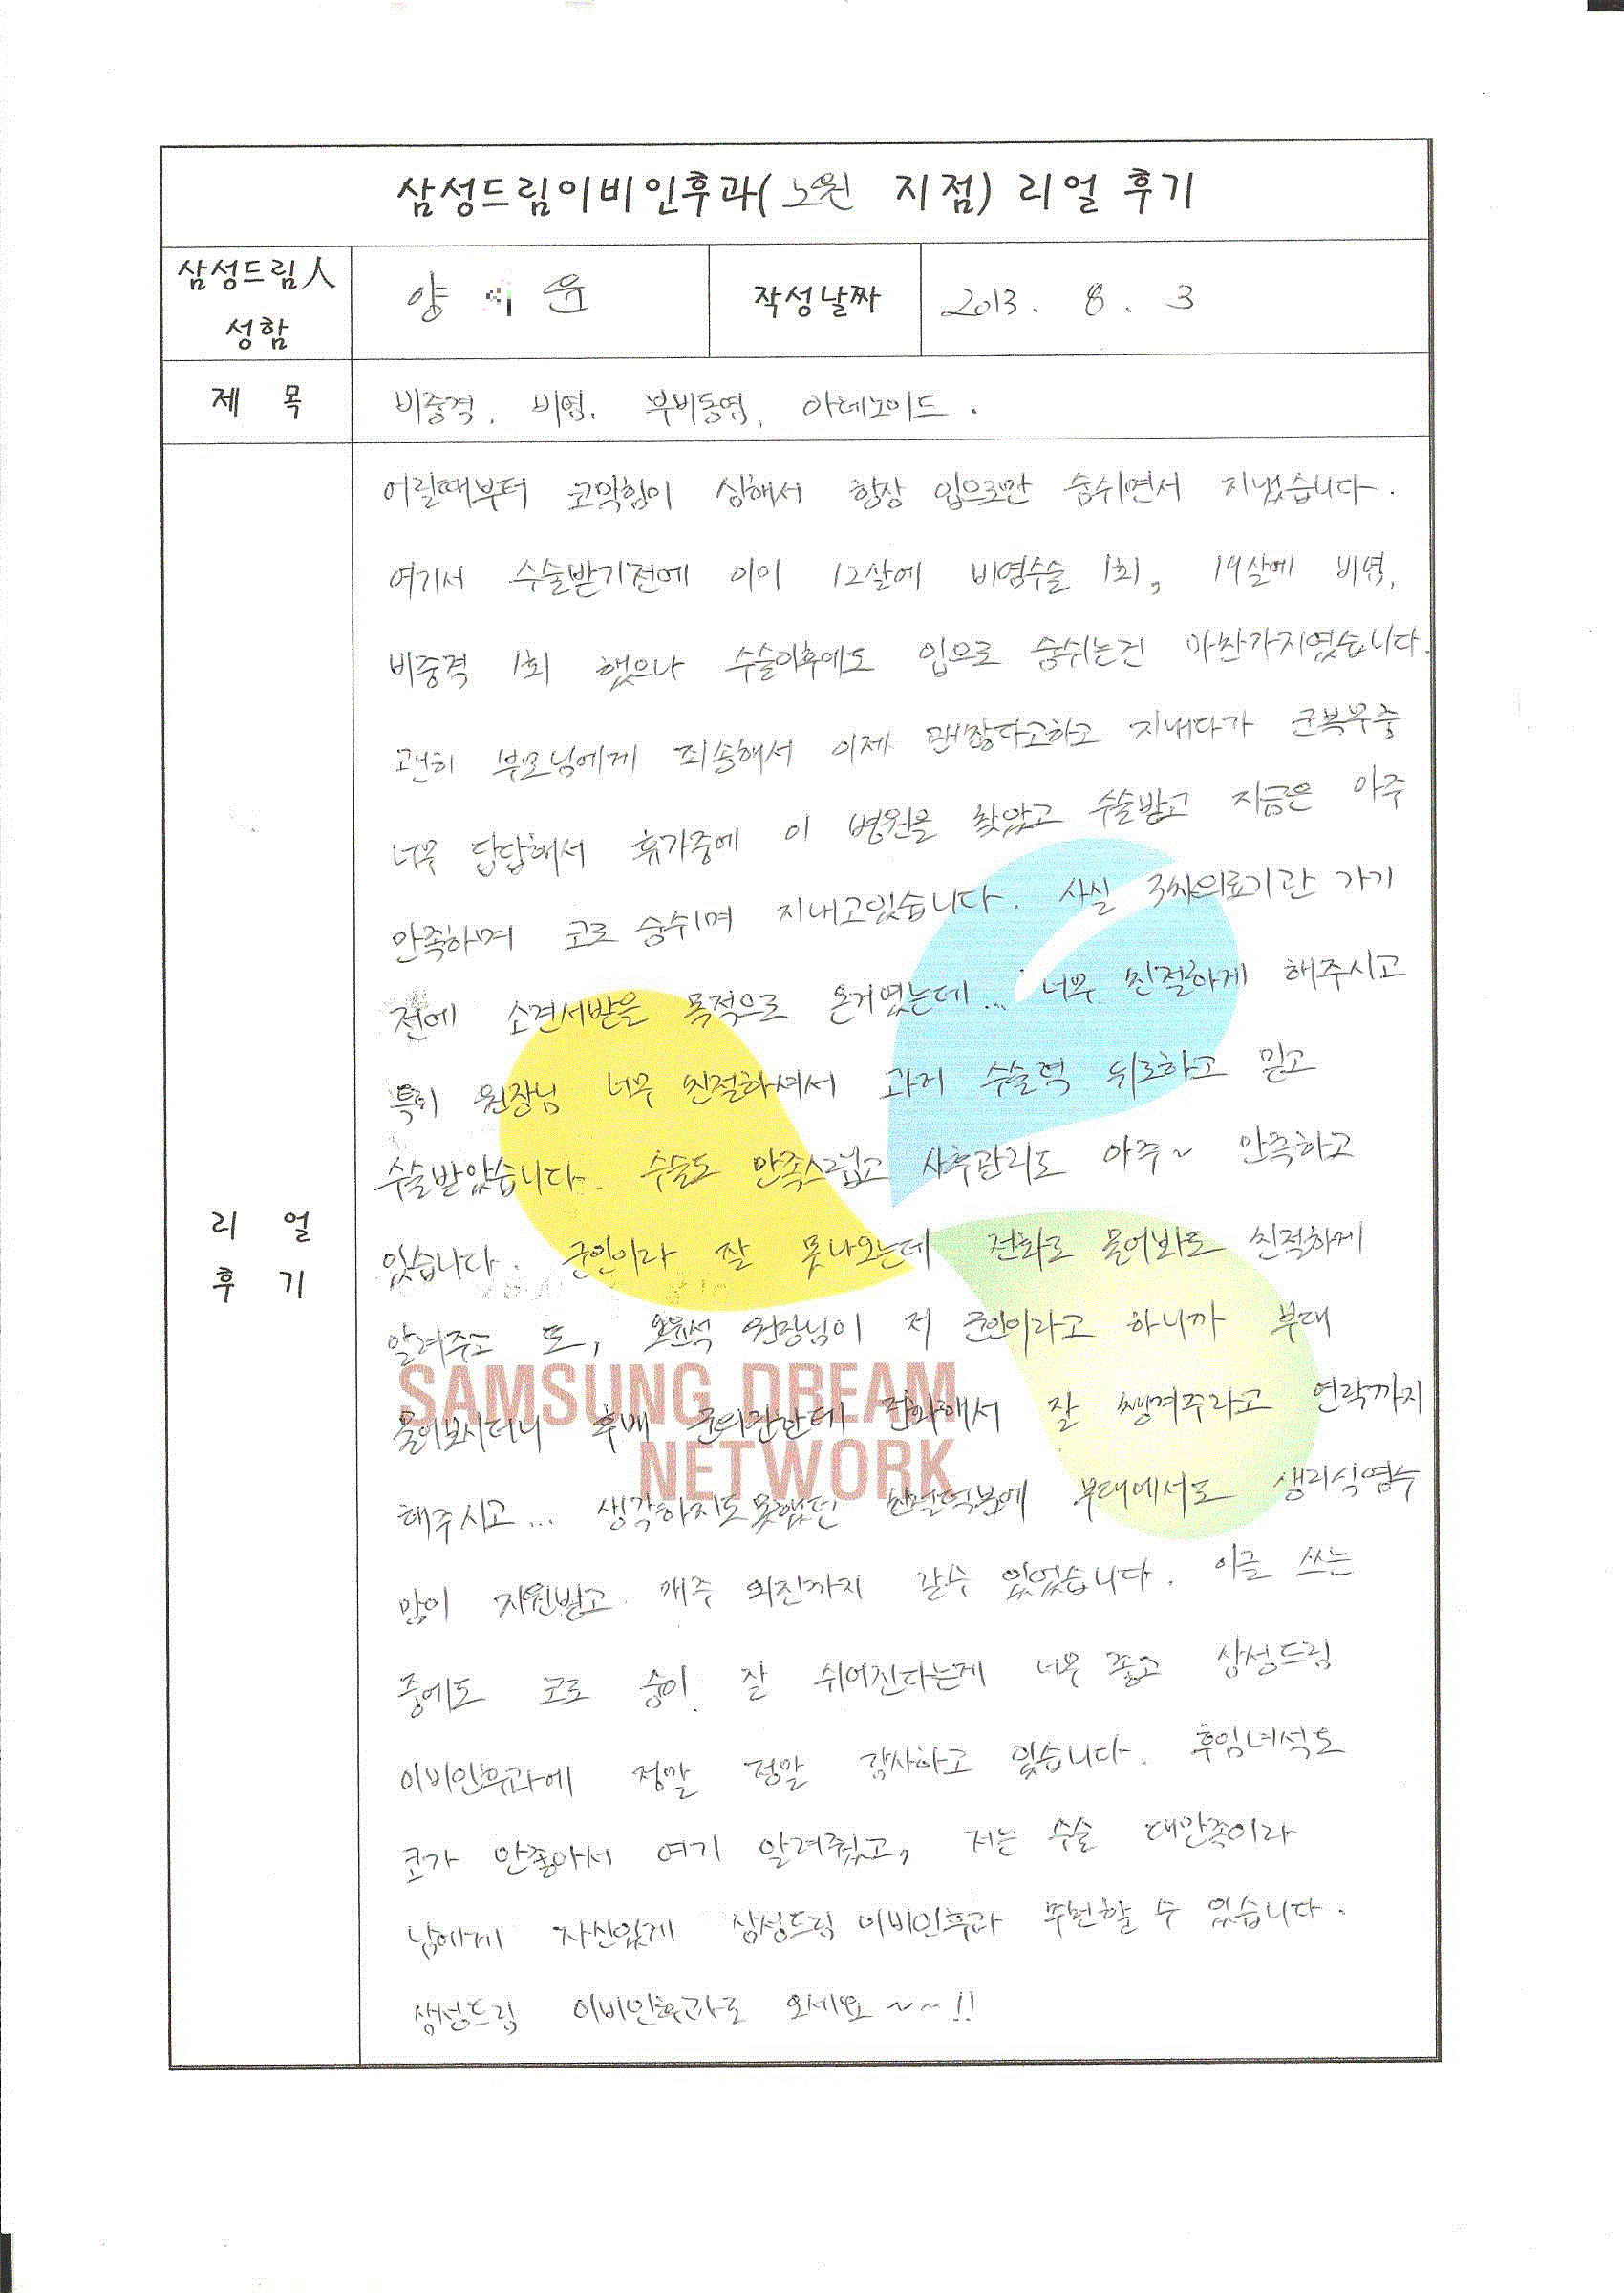 삼성드림이비인후과(노원 지점) 리얼 후기
삼성드림人 성함
양 윤
작성날짜
2013. 8. 3
제 목
비중격, 비염, 부비동염, 아데노이드.
리 얼 후 기
어릴때부터 코막힘이 심해서 항상 입으로만 숨쉬면서 지냈습니다.
여기서 수술받기전에 이미 12살에 비염수술 1회, 19살에 비염,
비중격 1회 했으나 수술이후에도 입으로 숨쉬는건 마찬가지였습니다.
괜히 부모님에게 죄송해서 이제 괜찮다고하고 지내다가 군복무중
너무 답답해서 휴가중에 이 병원을 찾았고 수술받고 지금은 아주
만족하며 코로 숨쉬며 지내고있습니다. 사실 3차의료기관 가기
전에 소견서받을 목적으로 온거였는데... 너무 친절하게 해주시고
특히 원장님 너무 친절하셔서 과거 수술력 뒤로하고 믿고
수술받았습니다. 수술도 만족스럽고 사후관리도 아주~ 만족하고
있습니다. 군인이라 잘 못나오는데 전화로 물어봐도 친절하게
알려주고 또, 원장님이 저 군인이라고 하니까 부대
물어보시더니 후배 군의관한테 전화해서 잘 챙겨주라고 연락까지
SAMSUNG DREAM
NETWORK
해주시고... 생각하지도못했던 친절덕분에 부대에서도 생리식염수
많이 지원받고 매주 외진까지 갈수 있었습니다. 이글 쓰는
중에도 코로 숨이 잘 쉬어진다는게 너무 좋고 삼성드림
이비인후과에 정말 정말 감사하고 있습니다. 후임녀석도
코가 안좋아서 여기 알려줬고, 저는 수술 대만족이라
남에게 자신있게 삼성드림 이비인후과 추천할 수 있습니다.
삼성드림 이비인후과로 오세요~~!!